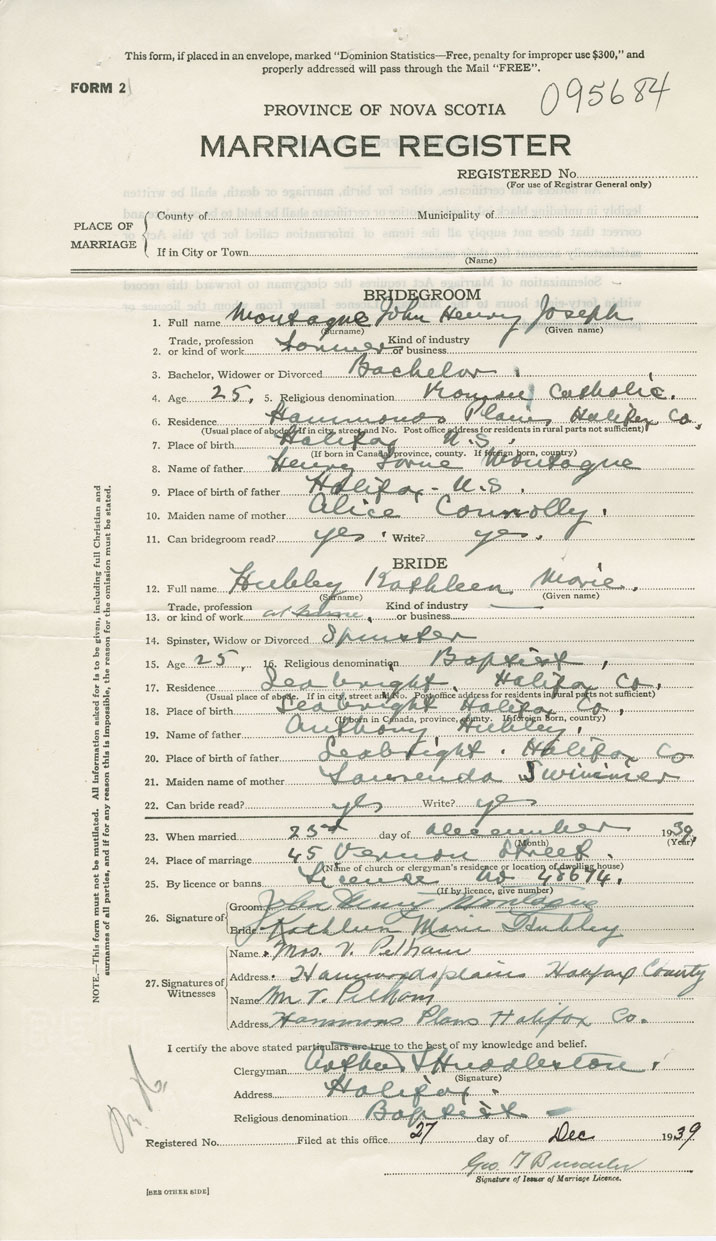 This form, if placed in an envelope, marked "Dominion Statistics—Free, penalty for improper use $300," and
properly addressed will pass through the Mail "FREE".
FORM 2
095684
PROVINCE OF NOVA SCOTIA
MARRIAGE REGISTER
REGISTERED No.
(For use of Registrar General only)
PLACE OF MARRIAGE
County of
Municipality of
If in City or Town
(Name)
BRIDEGROOM
1. Full name Montague John Henry Joseph
(Surname) (Given name)
Trade, profession Kind of industry
2. or kind of work or business
3. Bachelor, Widower or Divorced Bachelor
4. Age 25. 5. Religious denomination Roman Catholic.
6. Residence Hammonds Plains Halifax Co.
(Usual place of abode. If in city, street and No. Post office address for residents in rural parts not sufficient)
7. Place of birth Halifax N.S.
(If born in Canada, province, county. If foreign born, country)
8. Name of father Henry Lorne Montague
9. Place of birth of father Halifax - N.S.
10. Maiden name of mother Alice Connolly.
11. Can bridegroom read? yes. Write? yes.
BRIDE
12. Full name Hubley Kathleen Marie.
(Surname) (Given name)
Trade, profession Kind of industry
13. or kind of work at home. or business
14. Spinster, Widow or Divorced Spinster
15. Age 25. 16. Religious denomination Baptist.
17. Residence Seabright. Halifax Co.
(Usual place of abode. If in city, street and No. Post office address for residents in rural parts not sufficient)
18. Place of birth Seabright Halifax Co.
(If born in Canada, province, county. If foreign born, country)
19. Name of father Anthony Hubley.
20. Place of birth of father Seabright. Halifax Co
21. Maiden name of mother Laurenda
22. Can bride read? yes Write? yes
23. When married 23rd day of December 1939.
(Month) (Year)
24. Place of marriage 45 Vernon Street.
(Name of church or clergyman's residence or location of dwelling house)
25. By licence or banns License no 48674.
(If by licence, give number)
26. Signature of
Groom John Henry Montague
Bride Kathleen Marie Hubley
27. Signatures of Witnesses
Name Mrs. V. Pelham
Address Hammondsplains Halifax County
Name Mr V. Pelham
Address Hammons Plans Halifax Co.
I certify the above stated particulars are true to the best of my knowledge and belief.
Clergyman Arthur S Huddleston.
(Signature)
Address Halifax.
Religious denomination Baptist -
Registered No. Filed at this office 27 day of Dec 1939
Geo
Signature of Issuer of Marriage Licence.
[SEE OTHER SIDE]
NOTE.—This form must not be mutilated. All information asked for is to be given, including full Christian and
surnames of all parties, and if for any reason this is impossible, the reason for the omission must be stated.